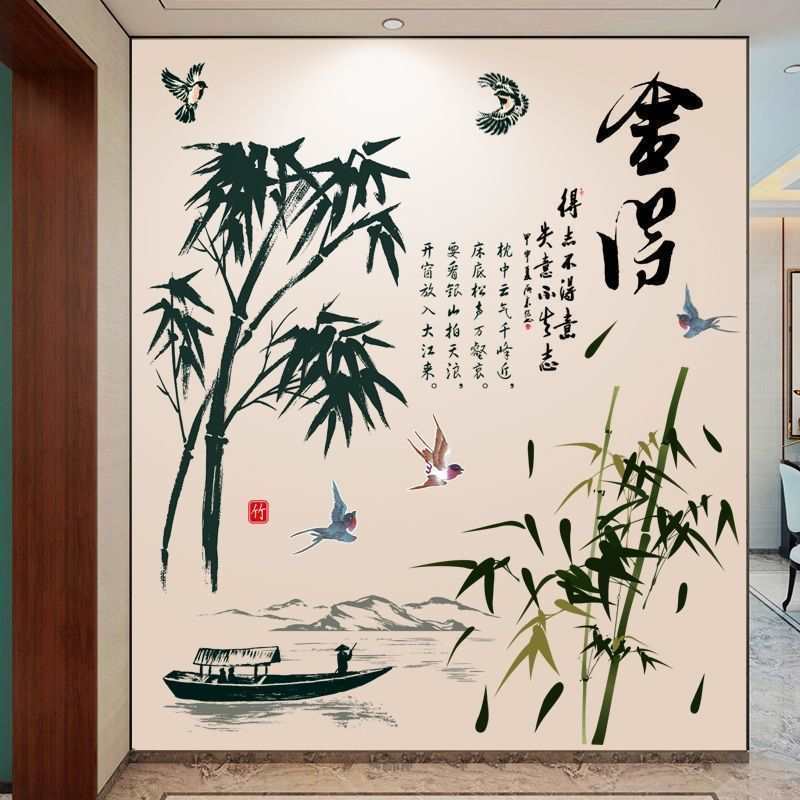 舍得
得志不得意
失意不失志
甲申夏
枕中云气千峰近，
床底松声万壑哀。
要看银山拍天浪，
开窗放入大江来。
竹